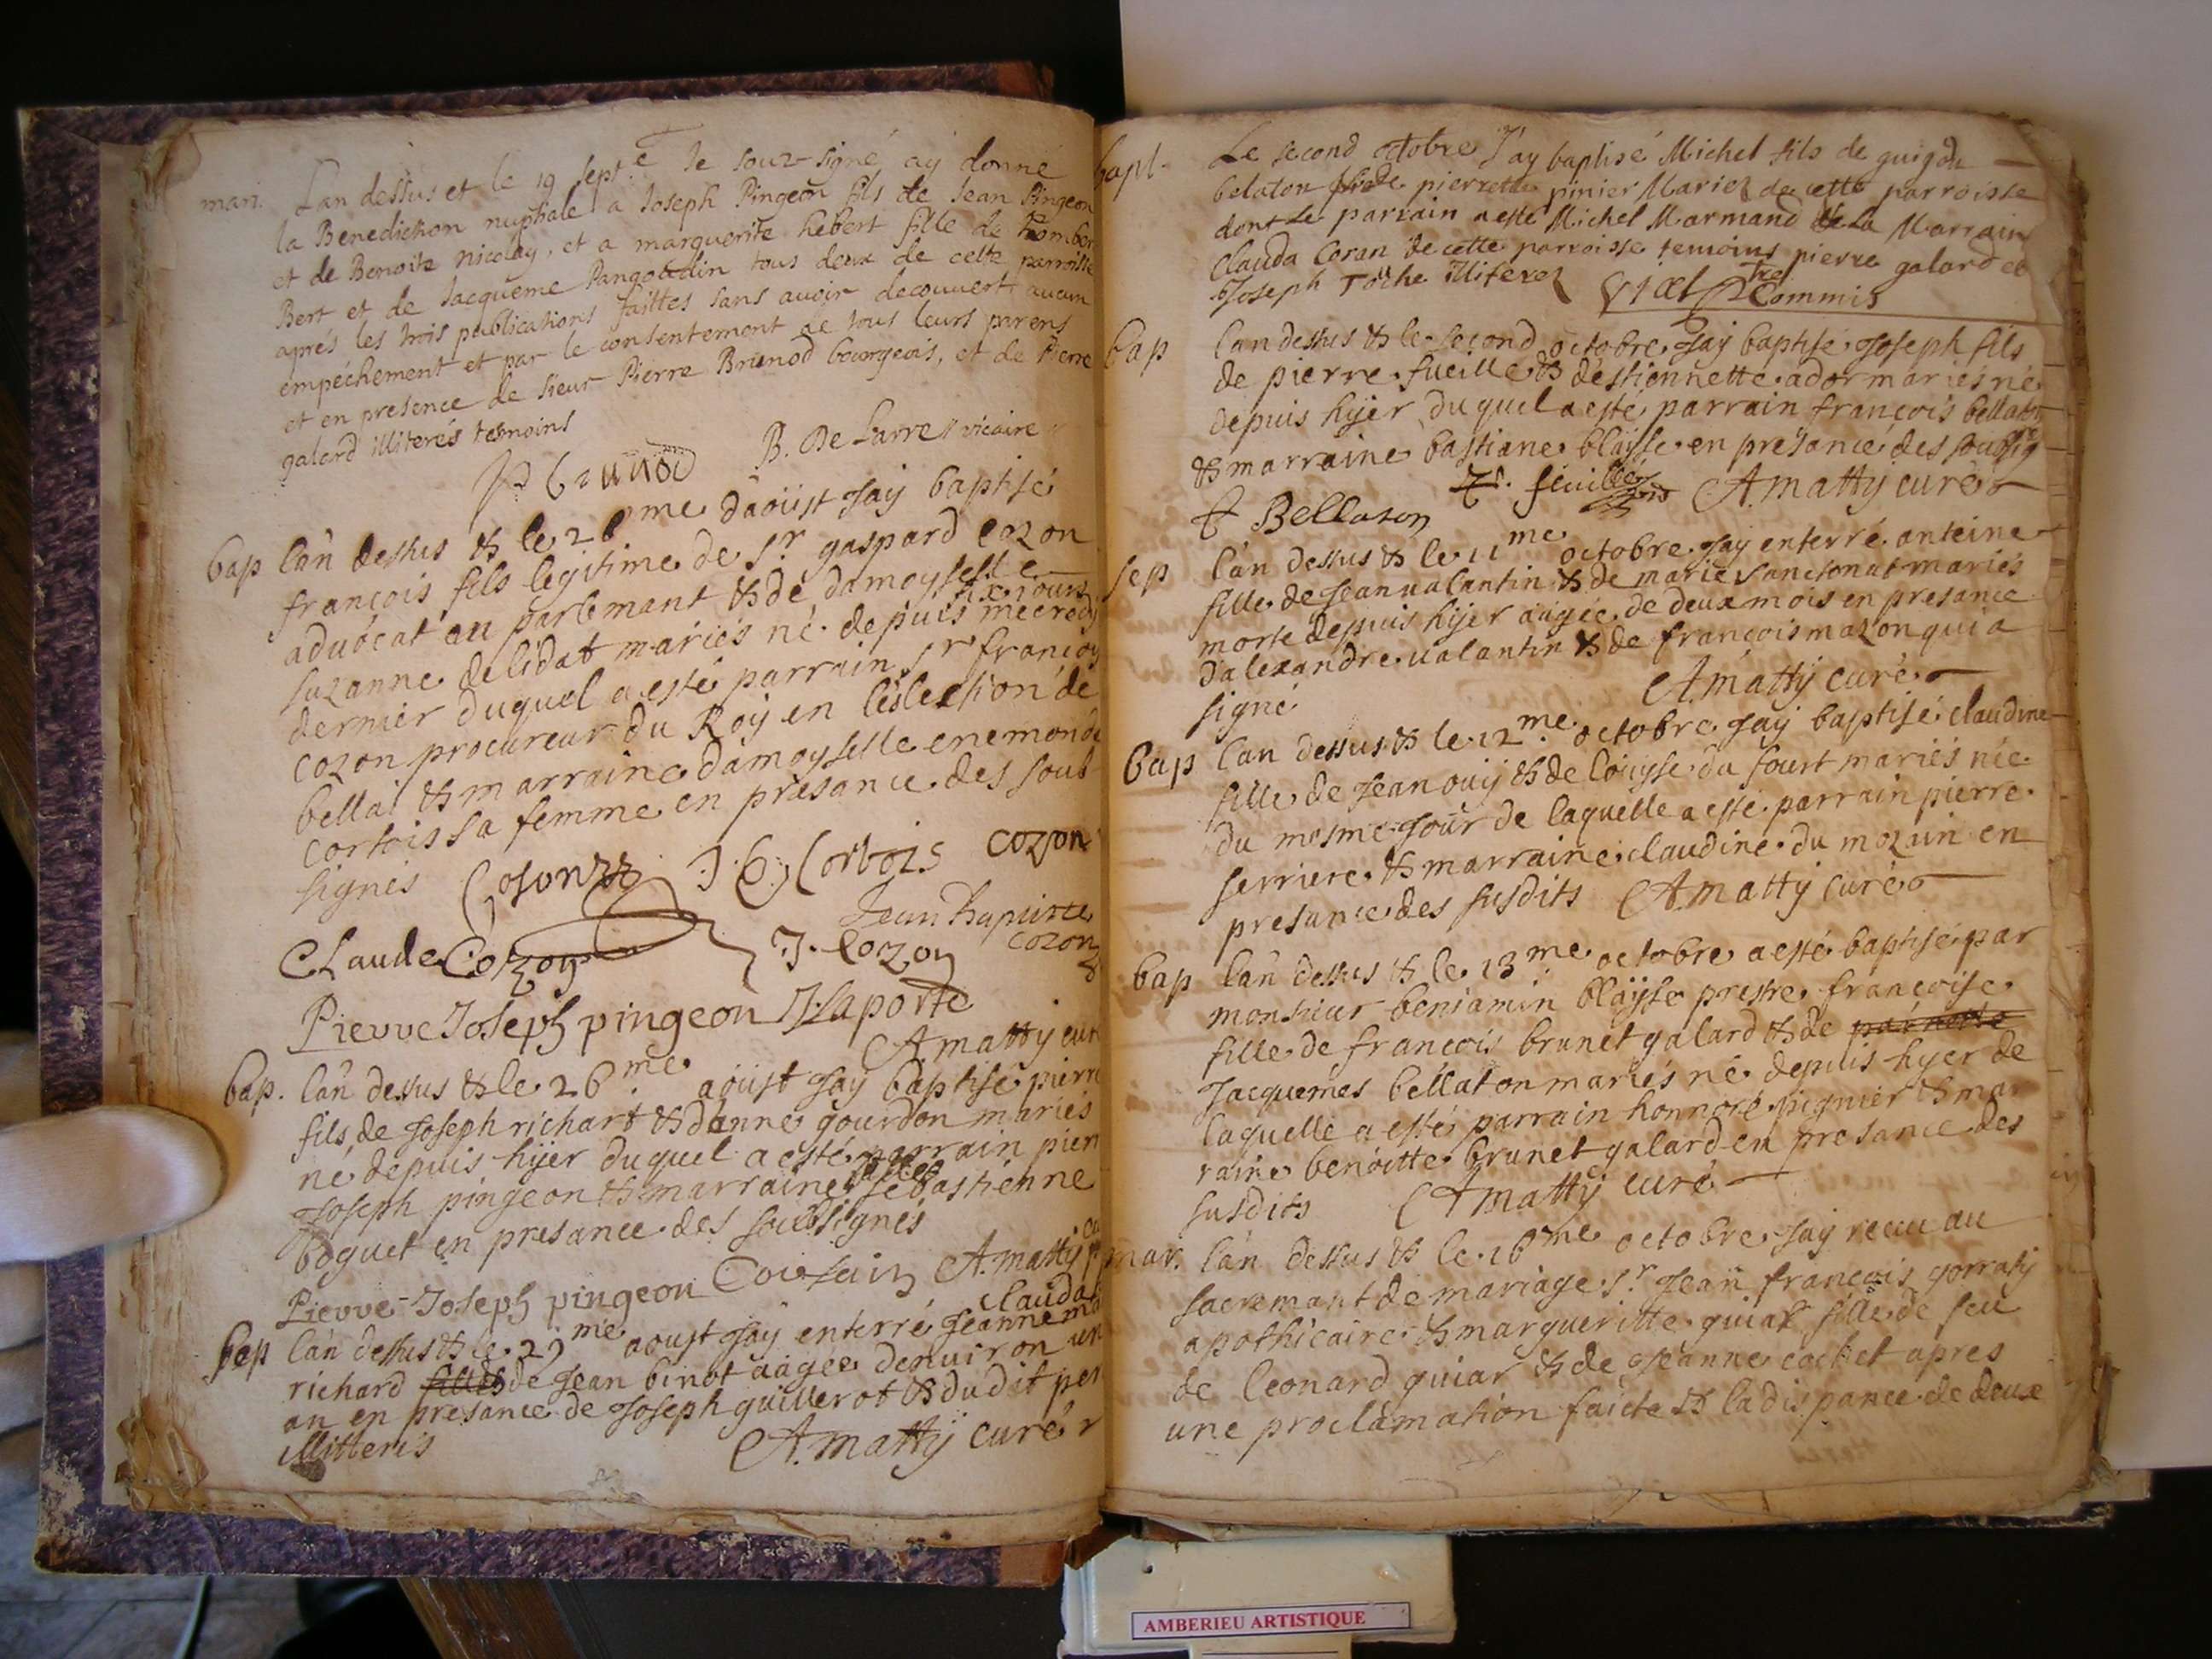 mari. Lan dessus et le 19 sept.e Je souz-signé ay donné
la Benediction nuptiale a Joseph Pingeon fils de Jean Pingeon
et de Benoite nicolay, et a marguerite hebert fille de
Bert et de Jacqueme tous deux de cette parroisse
aprés les trois publications faittes sans avoir decouvert aucun
empéchement et par le consentement de tous leurs parens
et en presence de sieur Pierre Brunod bourgeois, et de Pierre
galard illiterés tesmoins
P brunod B. De Larre vicaire
bap lan dessus & le 26me daoust Jay baptisé
francois fils legitime de sr gaspard cozon
advocat au parlemant & de damoyselle
suzanne delidat mariés né depuis six jours mecredy
dernier duquel a esté parrain sr francoy
cozon procureur du Roy en leslection de
bellai & marraine damoyselle enemonde
cortois sa femme en presance des soub
signés Cosonzz J. b. Cortois cozon
Jean Baptiste
Claude Cozon J. Cozon cozon
Pierre Joseph pingeon J. Laporte
A. matty cur
bap. lan dessus & le 26me aoust Jay baptisé pierre
fils de Joseph richart & danne gourdon mariés
né depuis hyer duquel a esté parrain pierr
Joseph pingeon & marraine sebastienne
boguet en presance des soubsignés
Pierre-Joseph pingeon A. matty
sep lan dessus & le 27me aoust Jay enterré Jeanne clauda
richard fille de Jean binot aagée denviron un
an en presance de Joseph guillerot & dudit per
illitterés A. matty curé
bapt. Le second octobre J'ay baptisé Michel fils de guigon
belaton & de pierrette pinier Mariez de cette parroisse
dont le parrain a esté Michel Marmand & la Marraine
Clauda Coran de cette parroisse temoins pierre galard et
Joseph Toche illiterez Vial Ptre Commis
bap lan dessus & le second octobre Jay baptisé Joseph fils
de pierre fueille & destiennette ador mariés né
depuis hyer duquel a esté parrain francois bellaton
& marraine bastiane blayse en presance des soubsig
F Bellaton feuillés A. matty curé
sep lan dessus & le 11me octobre Jay enterré anteine
fille de Jean valantin & de marie sanctonat mariés
morte depuis hyer aagée de deux mois en presance
dalexandre valantin & de francois mazon qui a
signé A. matty curé
bap lan dessus & le 12me octobre Jay baptisé claudine
fille de Jean ouij & de louyse du fourt mariés née
du mesme Jour de laquelle a esté parrain pierre
serriere & marraine claudine du mozain en
presance des susdits A. matty curé
bap lan dessus & le 13me octobre a esté baptisé par
monsieur beniamin blayse prestre francoise
fille de francois brunet galard & de
Jacquemes bellaton mariés né depuis hyer de
laquelle a esté parrain honnoré pignier & mar
raine benoitte brunet galard en presance des
susdits A. matty curé
mar. lan dessus & le 16me octobre Jay receu au
sacremant de mariage sr Jean francois gorraty
apothicaire & margueritte guiar fille de feu
de leonard guiar & de Jeanne cochet apres
une proclamation faicte & la dispance de deux
AMBERIEU ARTISTIQUE